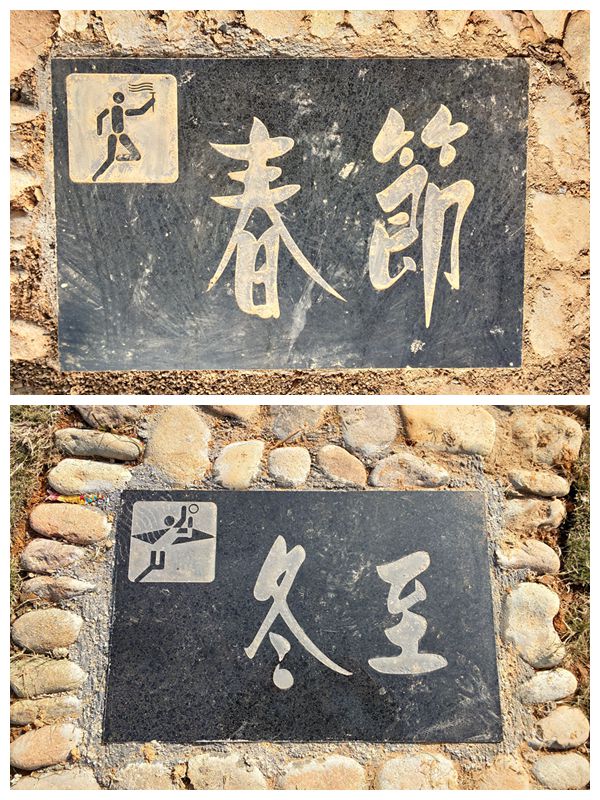 春節
冬至